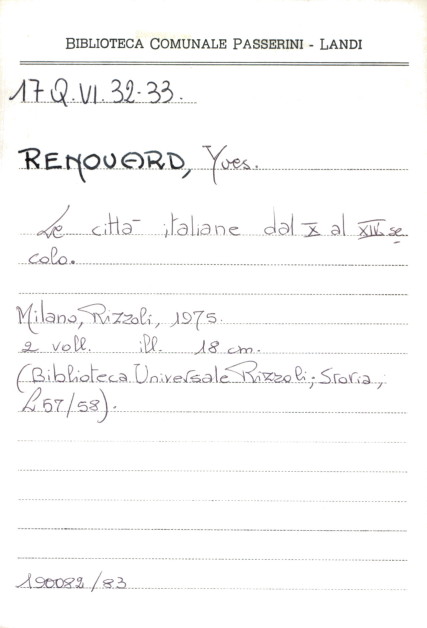 BIBLIOTECA COMUNALE PASSERINI - LANDI
17 Q.VI.32-33.
RENOUARD, Yves.
Le città italiane dal X al XIV se
colo.
Milano, Rizzoli, 1975.
2 voll. ill. 18 cm.
(Biblioteca Universale Rizzoli; Storia,
L 57/58).
190082/83